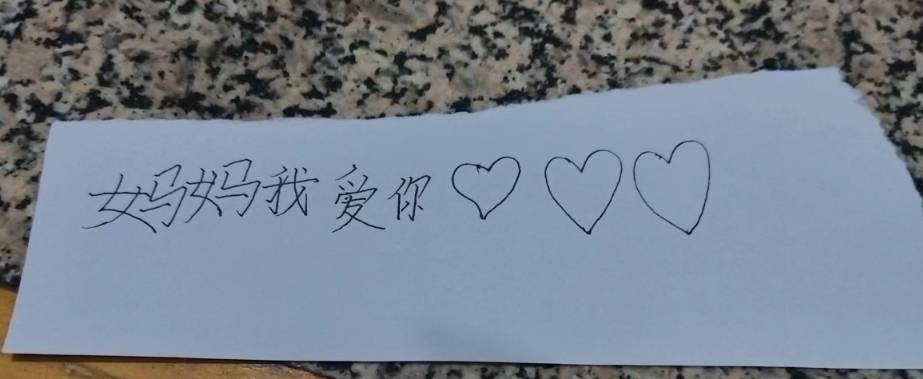 妈妈我爱你♡♡♡